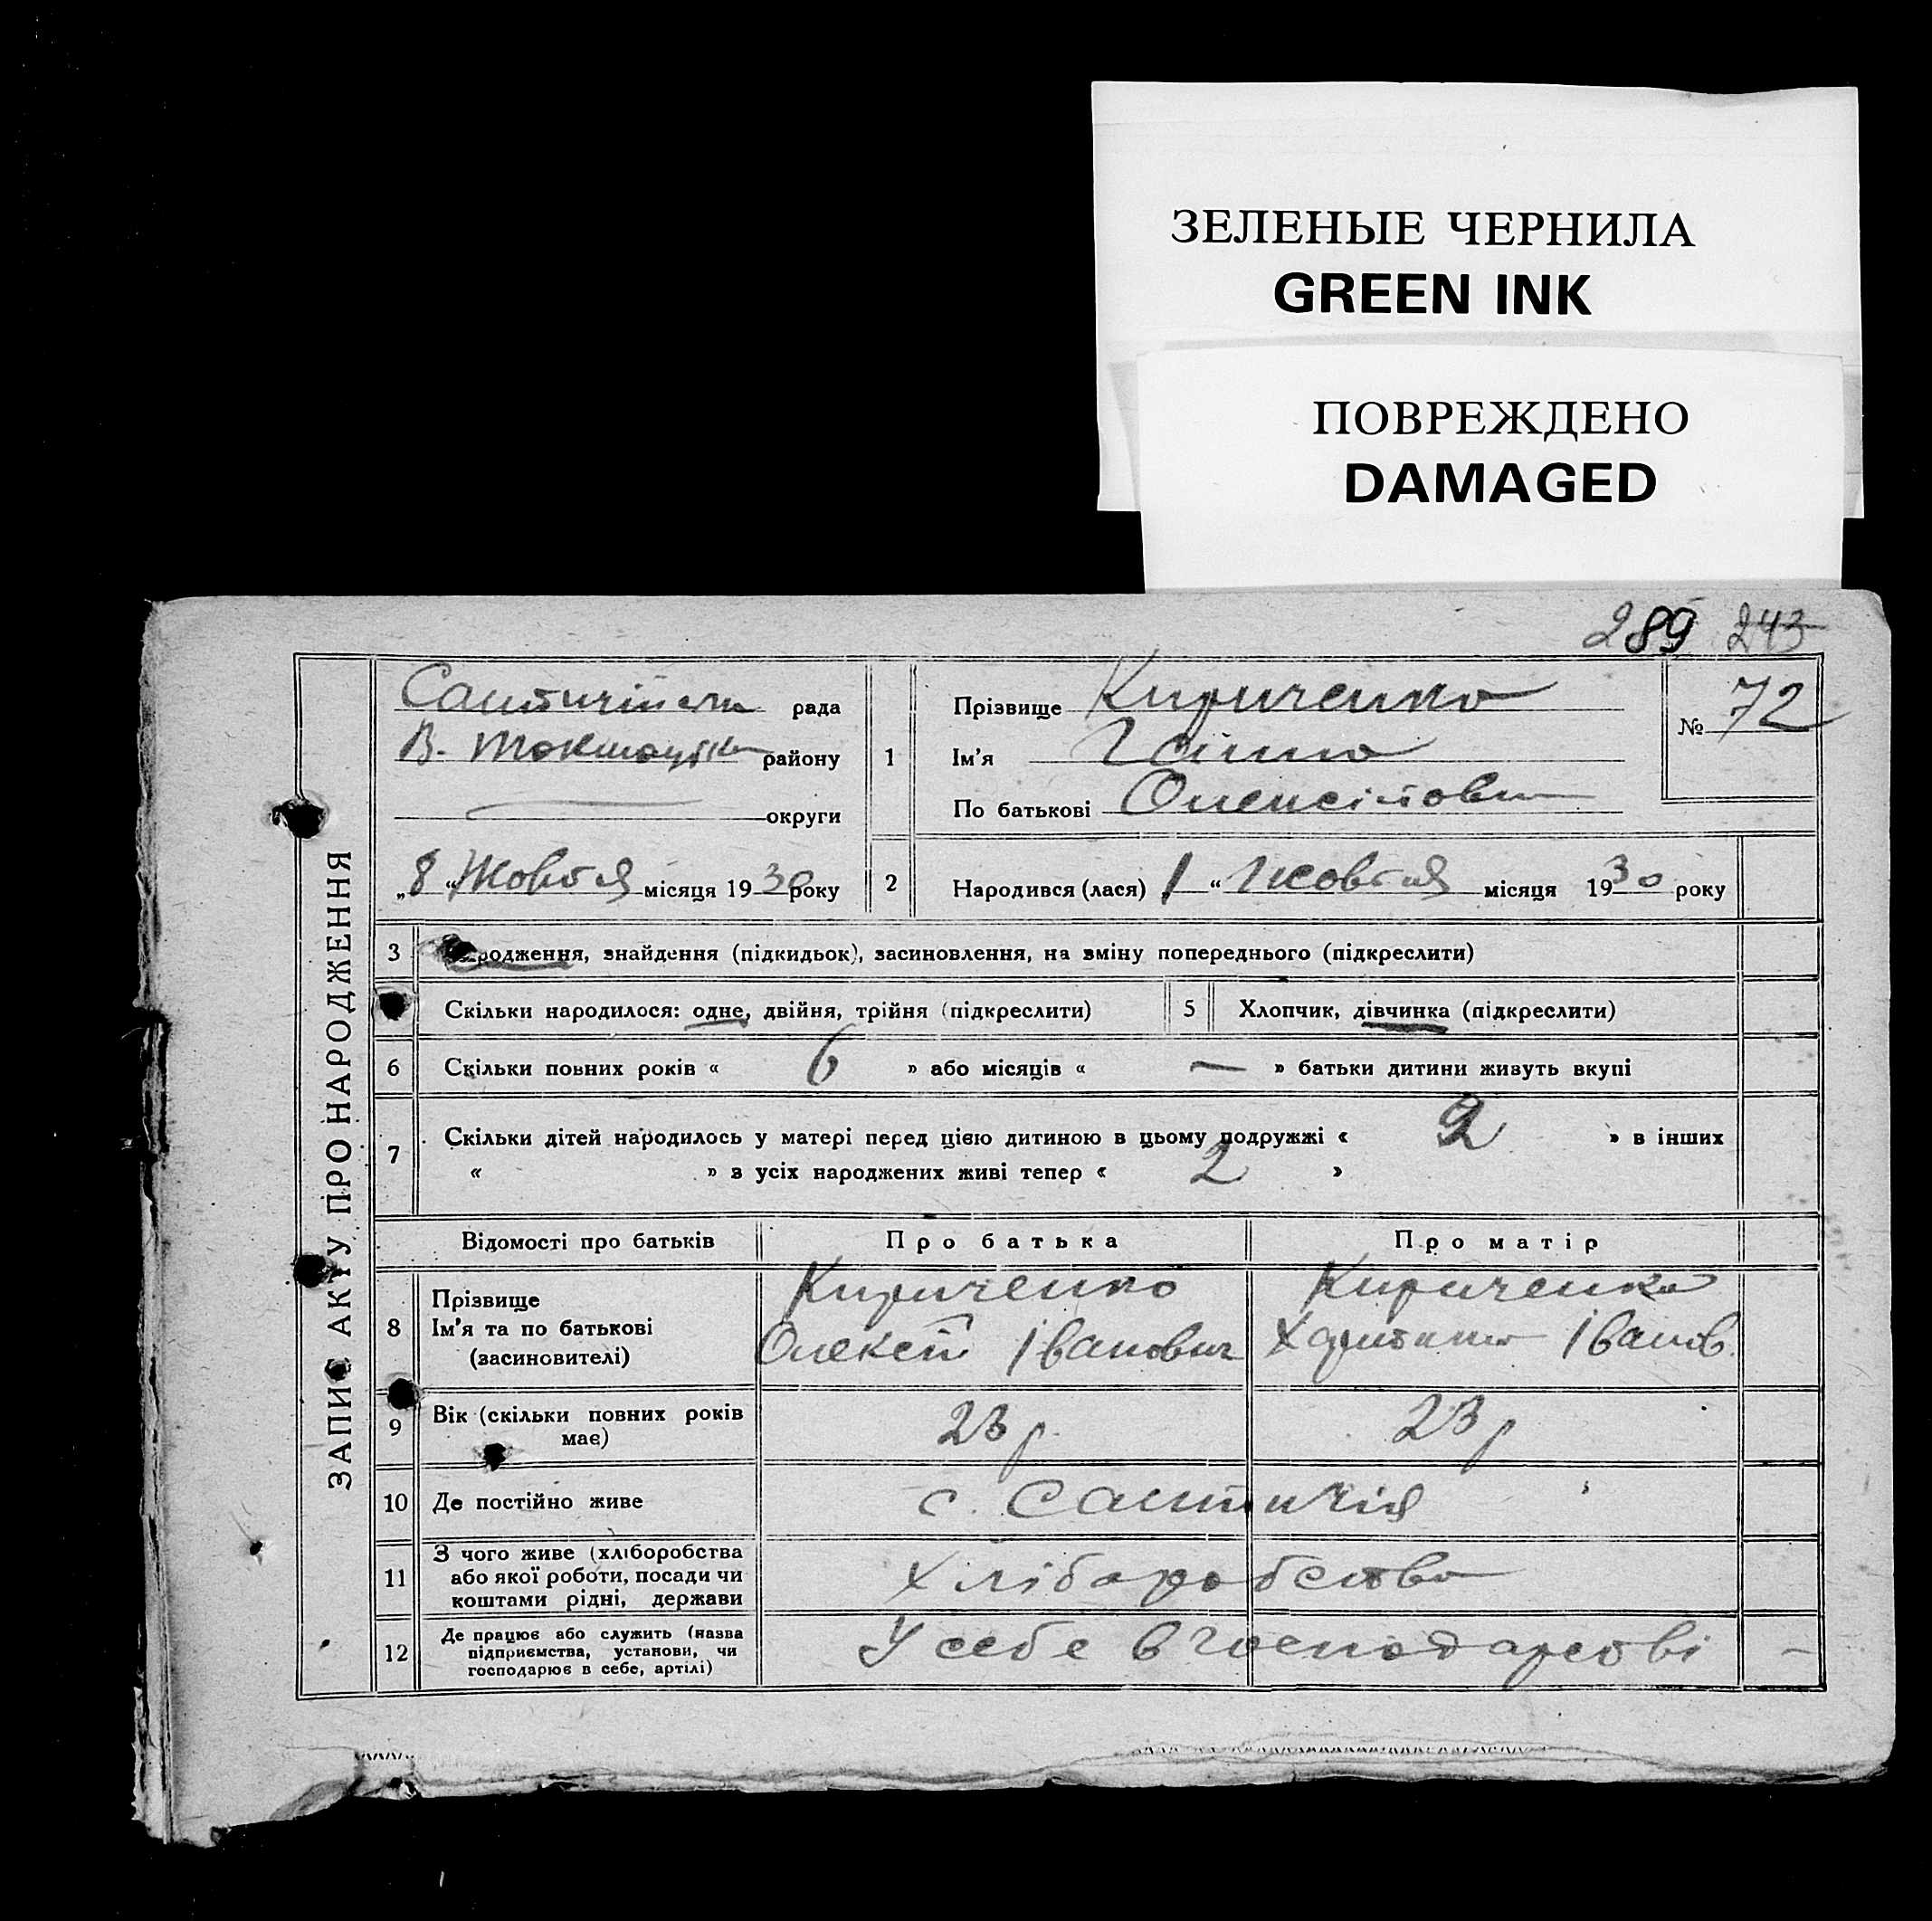 ЗЕЛЕНЫЕ ЧЕРНИЛА
GREEN INK
ПОВРЕЖДЕНО
DAMAGED
289 243
ЗАПИС АКТУ ПРО НАРОДЖЕННЯ
рада
В. Токмацька району
округи
„8“ Жовтня місяця 1930 року
1
Прізвище Кириченко
Ім'я Ганна
По батькові Олексіїовна
№ 72
2
Народився (лася) „1“ Жовтня місяця 1930 року
3
родження, знайдення (підкидьок), засиновлення, на зміну попереднього (підкреслити)
Скільки народилося: одне, двійня, трійня (підкреслити)
5
Хлопчик, дівчинка (підкреслити)
6
Скільки повних років « 6 » або місяців « — » батьки дитини живуть вкупі
7
Скільки дітей народилось у матері перед цією дитиною в цьому подружжі « 2 » в інших
« » з усіх народжених живі тепер « 2 »
Відомості про батьків
Про батька
Про матір
8
Прізвище
Ім'я та по батькові
(засиновителі)
Кириченко
Олексій Іванович
Кириченко
Харитина Іванов.
9
Вік (скільки повних років
має)
23 р.
23 р
10
Де постійно живе
с. Салтичія
11
З чого живе (хліборобства
або якої роботи, посади чи
коштами рідні, держави
Хліборобство
12
Де працює або служить (назва
підприємства, установи, чи
господарює в себе, артілі)
У себе в господарстві –